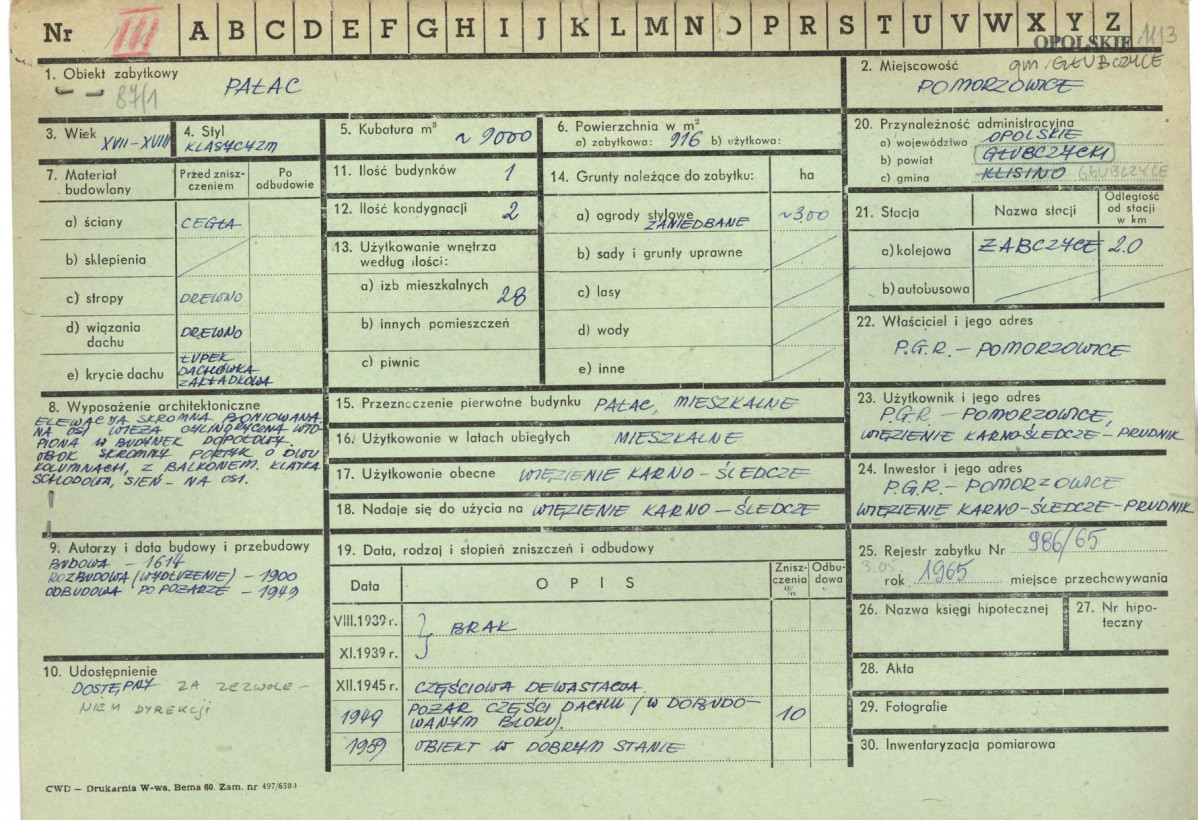 Nr III A B C D E F G H I J K L M N O P R S T U V W X Y Z
OPOLSKIE 1113
1. Obiekt zabytkowy
87/1
PAŁAC
2. Miejscowość gm. GŁUBCZYCE
POMORZOWICE
3. Wiek
XVII - XVIII
4. Styl
KLASYCYZM
5. Kubatura m³ ~ 9000
6. Powierzchnia w m²
a) zabytkowa: 916 b) użytkowa:
20. Przynależność administracyjna
a) województwo OPOLSKIE
b) powiat GŁUBCZYCKI
c) gmina KLISINO GŁUBCZYCE
7. Materiał budowlany
Przed zniszczeniem
Po odbudowie
a) ściany CEGŁA
b) sklepienia
c) stropy DREWNO
d) wiązania dachu DREWNO
e) krycie dachu ŁUPEK
DACHÓWKA
ZAKŁADKOWA
11. Ilość budynków 1
12. Ilość kondygnacji 2
13. Użytkowanie wnętrza
według ilości:
a) izb mieszkalnych 28
b) innych pomieszczeń
c) piwnic
14. Grunty należące do zabytku: ha
a) ogrody stylowe ~3,00
ZANIEDBANE
b) sady i grunty uprawne
c) lasy
d) wody
e) inne
21. Stacja Nazwa stacji Odległość od stacji w km
a) kolejowa ZABCZYCE 2.0
b) autobusowa
22. Właściciel i jego adres
P.G.R. - POMORZOWICE
8. Wyposażenie architektoniczne
ELEWACJA SKROMNA BONIOWANA
NA OSI WIEŻA CYLINDRYCZNA WTO-
PIONA W BUDYNEK DOPOŁOWY.
OBOK SKROMNY PORTYK O DWU
KOLUMNACH, Z BALKONEM. KLATKA
SCHODOWA, SIEŃ - NA OSI.
15. Przeznaczenie pierwotne budynku PAŁAC, MIESZKALNE
16. Użytkowanie w latach ubiegłych MIESZKALNE
17. Użytkowanie obecne WIĘZIENIE KARNO - ŚLEDCZE
18. Nadaje się do użycia na WIĘZIENIE KARNO - ŚLEDCZE
23. Użytkownik i jego adres
P.G.R. - POMORZOWICE,
WIĘZIENIE KARNO-ŚLEDCZE - PRUDNIK
24. Inwestor i jego adres
P.G.R. - POMORZOWICE
WIĘZIENIE KARNO-ŚLEDCZE - PRUDNIK
9. Autorzy i data budowy i przebudowy
BUDOWA - 1614
ROZBUDOWA (WYDŁUŻENIE) - 1900
ODBUDOWA PO POŻARZE - 1949
19. Data, rodzaj i stopień zniszczeń i odbudowy
Data OPIS Zniszczenia % Odbudowa
VIII.1939 r.
BRAK
XI.1939 r.
XII.1945 r. CZĘŚCIOWA DEWASTACJA.
1949 POŻAR CZĘŚCI DACHU (W DOBUDO-
WANYM BLOKU). 10
1959 OBIEKT W DOBRYM STANIE
25. Rejestr zabytku Nr 986/65
3.05. rok 1965 miejsce przechowywania
26. Nazwa księgi hipotecznej
27. Nr hipoteczny
28. Akta
29. Fotografie
30. Inwentaryzacja pomiarowa
10. Udostępnienie
DOSTĘPNY ZA ZEZWOLE-
NIEM DYREKCJI
CWD — Drukarnia W-wa, Bema 60. Zam. nr 497/650